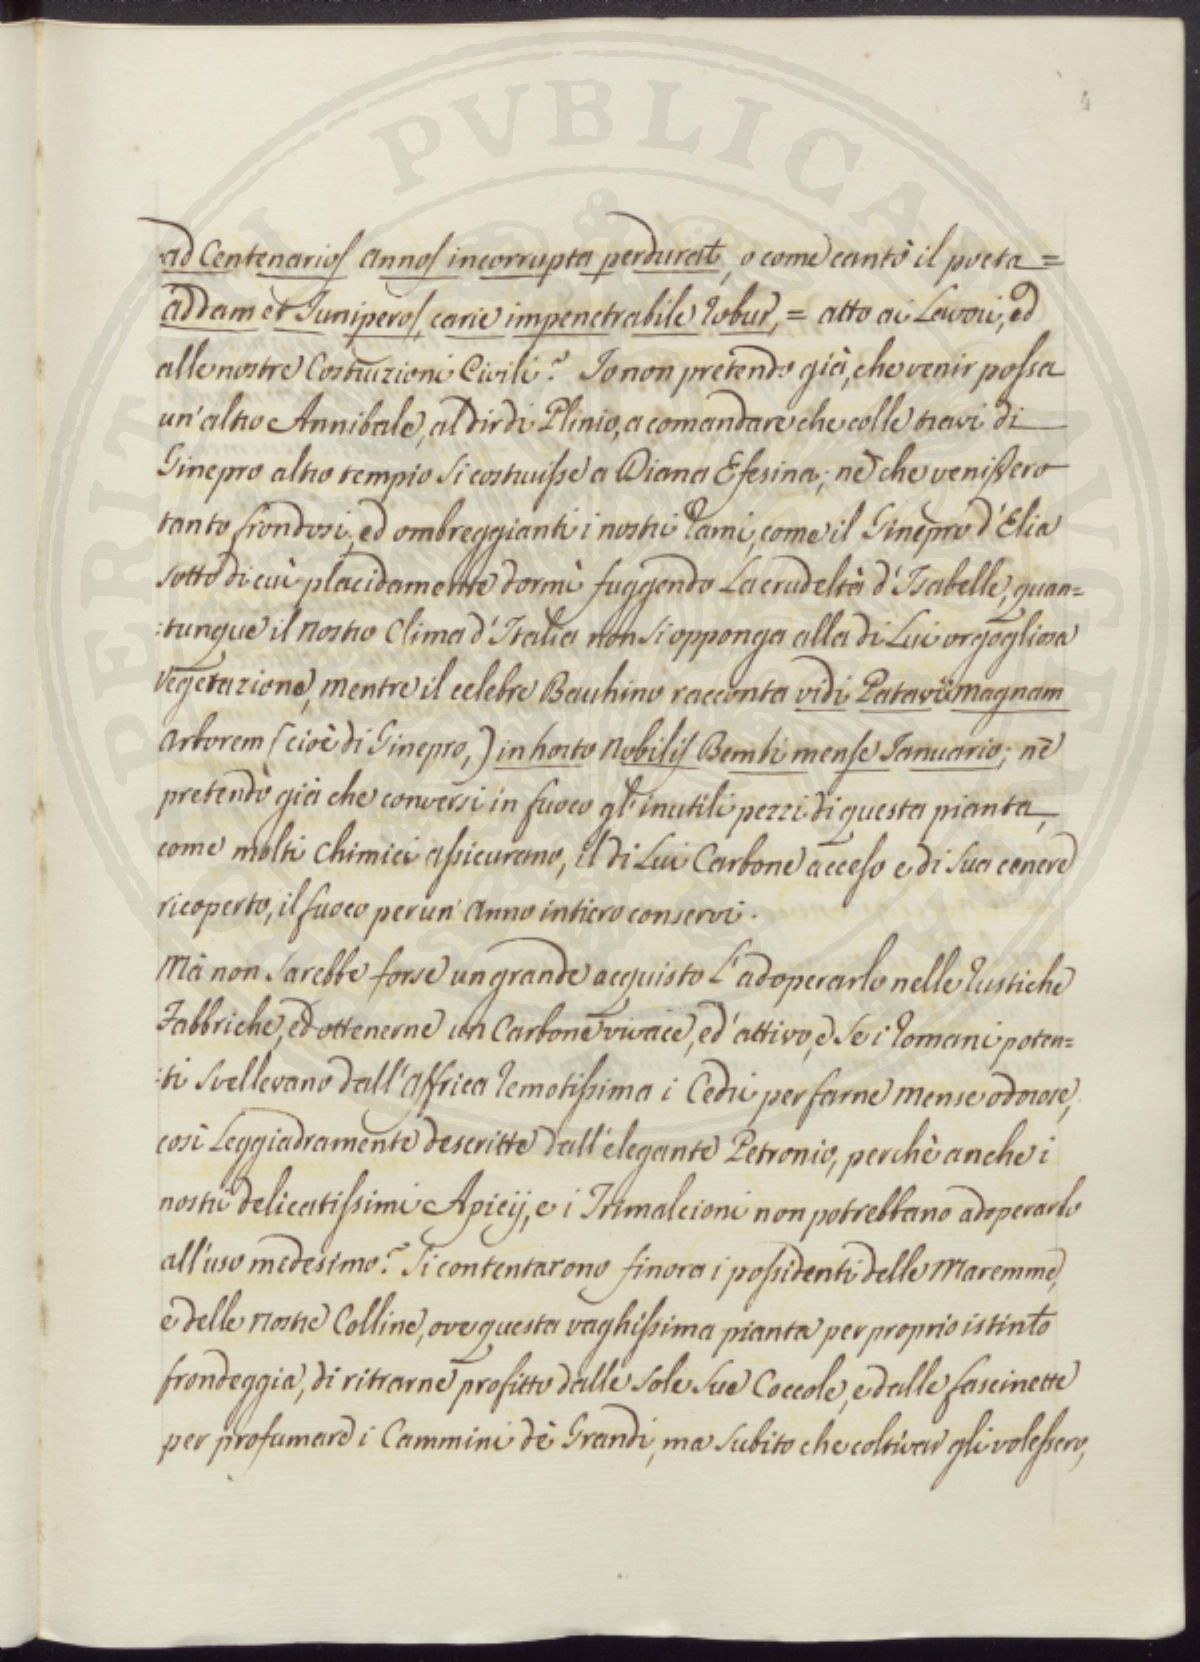 4
ad Centenarios annos incorrupta perdurat, o come cantò il poeta =
addam et Juniperos, carie impenetrabile robur, = atto ai Lavori, ed
alle nostre Costruzioni Civili? Io non pretendo già, che venir possa
un' altro Annibale, al dir di Plinio, a comandare che colle travi di
Ginepro altro tempio si costruisse a Diana Efesina; nè che venissero
tanto frondosi, ed ombreggianti i nostri rami, come il Ginepro d'Elia
sotto di cui placidamente dormì fuggendo La crudeltà d'Isabelle, quan=
:tunque il nostro Clima d'Italia non si opponga alla di Lui orgogliosa
vegetazione, mentre il celebre Bauhino racconta vidi Patavii magnam
arborem (cioè di Ginepro,) in horto Nobilis Bembi mense Ianuario; nè
pretendo già che conversi in fuoco gl'inutili pezzi di questa pianta,
come molti Chimici assicurano, il di Lui Carbone acceso e di sua cenere
ricoperto, il fuoco per un' Anno intiero conservi.
Mà non sarebbe forse un grande acquisto L'adoperarlo nelle rustiche
Fabbriche, ed ottenerne un Carbone vivace, ed' attivo, e se i Romani poten=
:ti svellevano dall'Affrica remotissima i Cedri per farne mense odorose,
così Leggiadramente descritte dall'elegante Petronio, perchè anche i
nostri delicatissimi Apicij, e i Trimalcioni non potrebbano adoperarlo
all'uso medesimo? Si contentarono finora i possidenti delle Maremme,
e delle nostre Colline, ove questa vaghissima pianta per proprio istinto
frondeggia, di ritrarne profitto dalle sole sue Coccole, e dalle fascinette
per profumare i Cammini dè Grandi, ma subito che coltivar gli volessero,